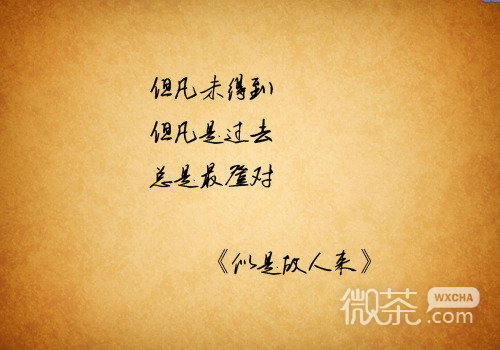 但凡未得到
但凡是过去
总是最登对
《似是故人来》
微茶 WXCHA
.com